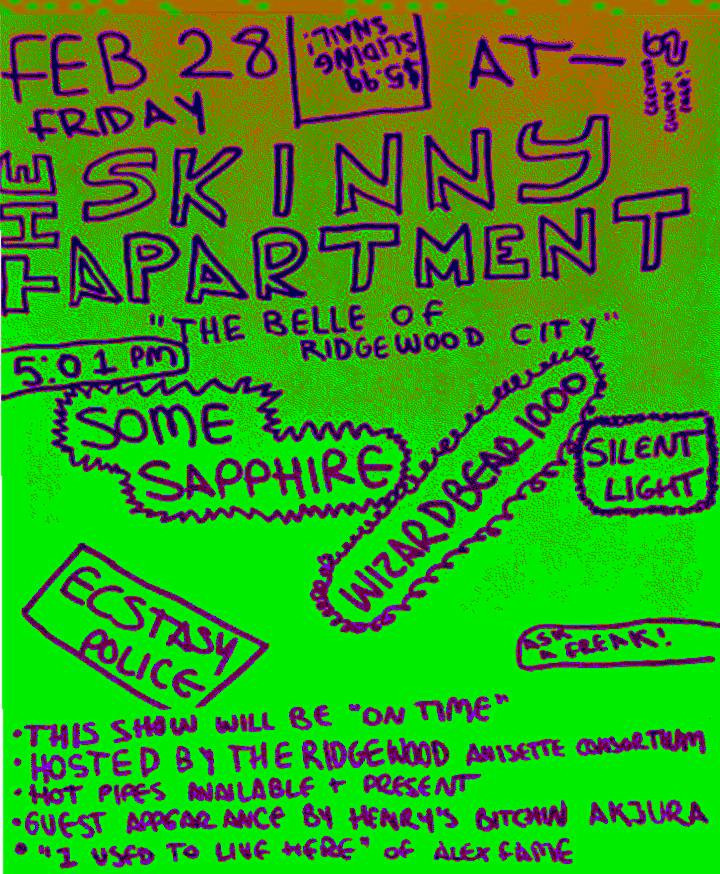 FEB 28
FRIDAY
$5.99
SLIDING
SNAIL!
AT—
THE
SKINNY
APARTMENT
"THE BELLE OF
RIDGEWOOD CITY"
5:01 PM
SOME
SAPPHIRE
WIZARDBEAR1000
SILENT
LIGHT
ECSTASY
POLICE
ASK
A FREAK!
•THIS SHOW WILL BE "ON TIME"
•HOSTED BY THE RIDGEWOOD ANISETTE CONSORTIUM
•HOT PIPES AVAILABLE + PRESENT
•GUEST APPEARANCE BY HENRY'S BITCHIN AKJURA
• "I USED TO LIVE HERE" OF ALEX FAME